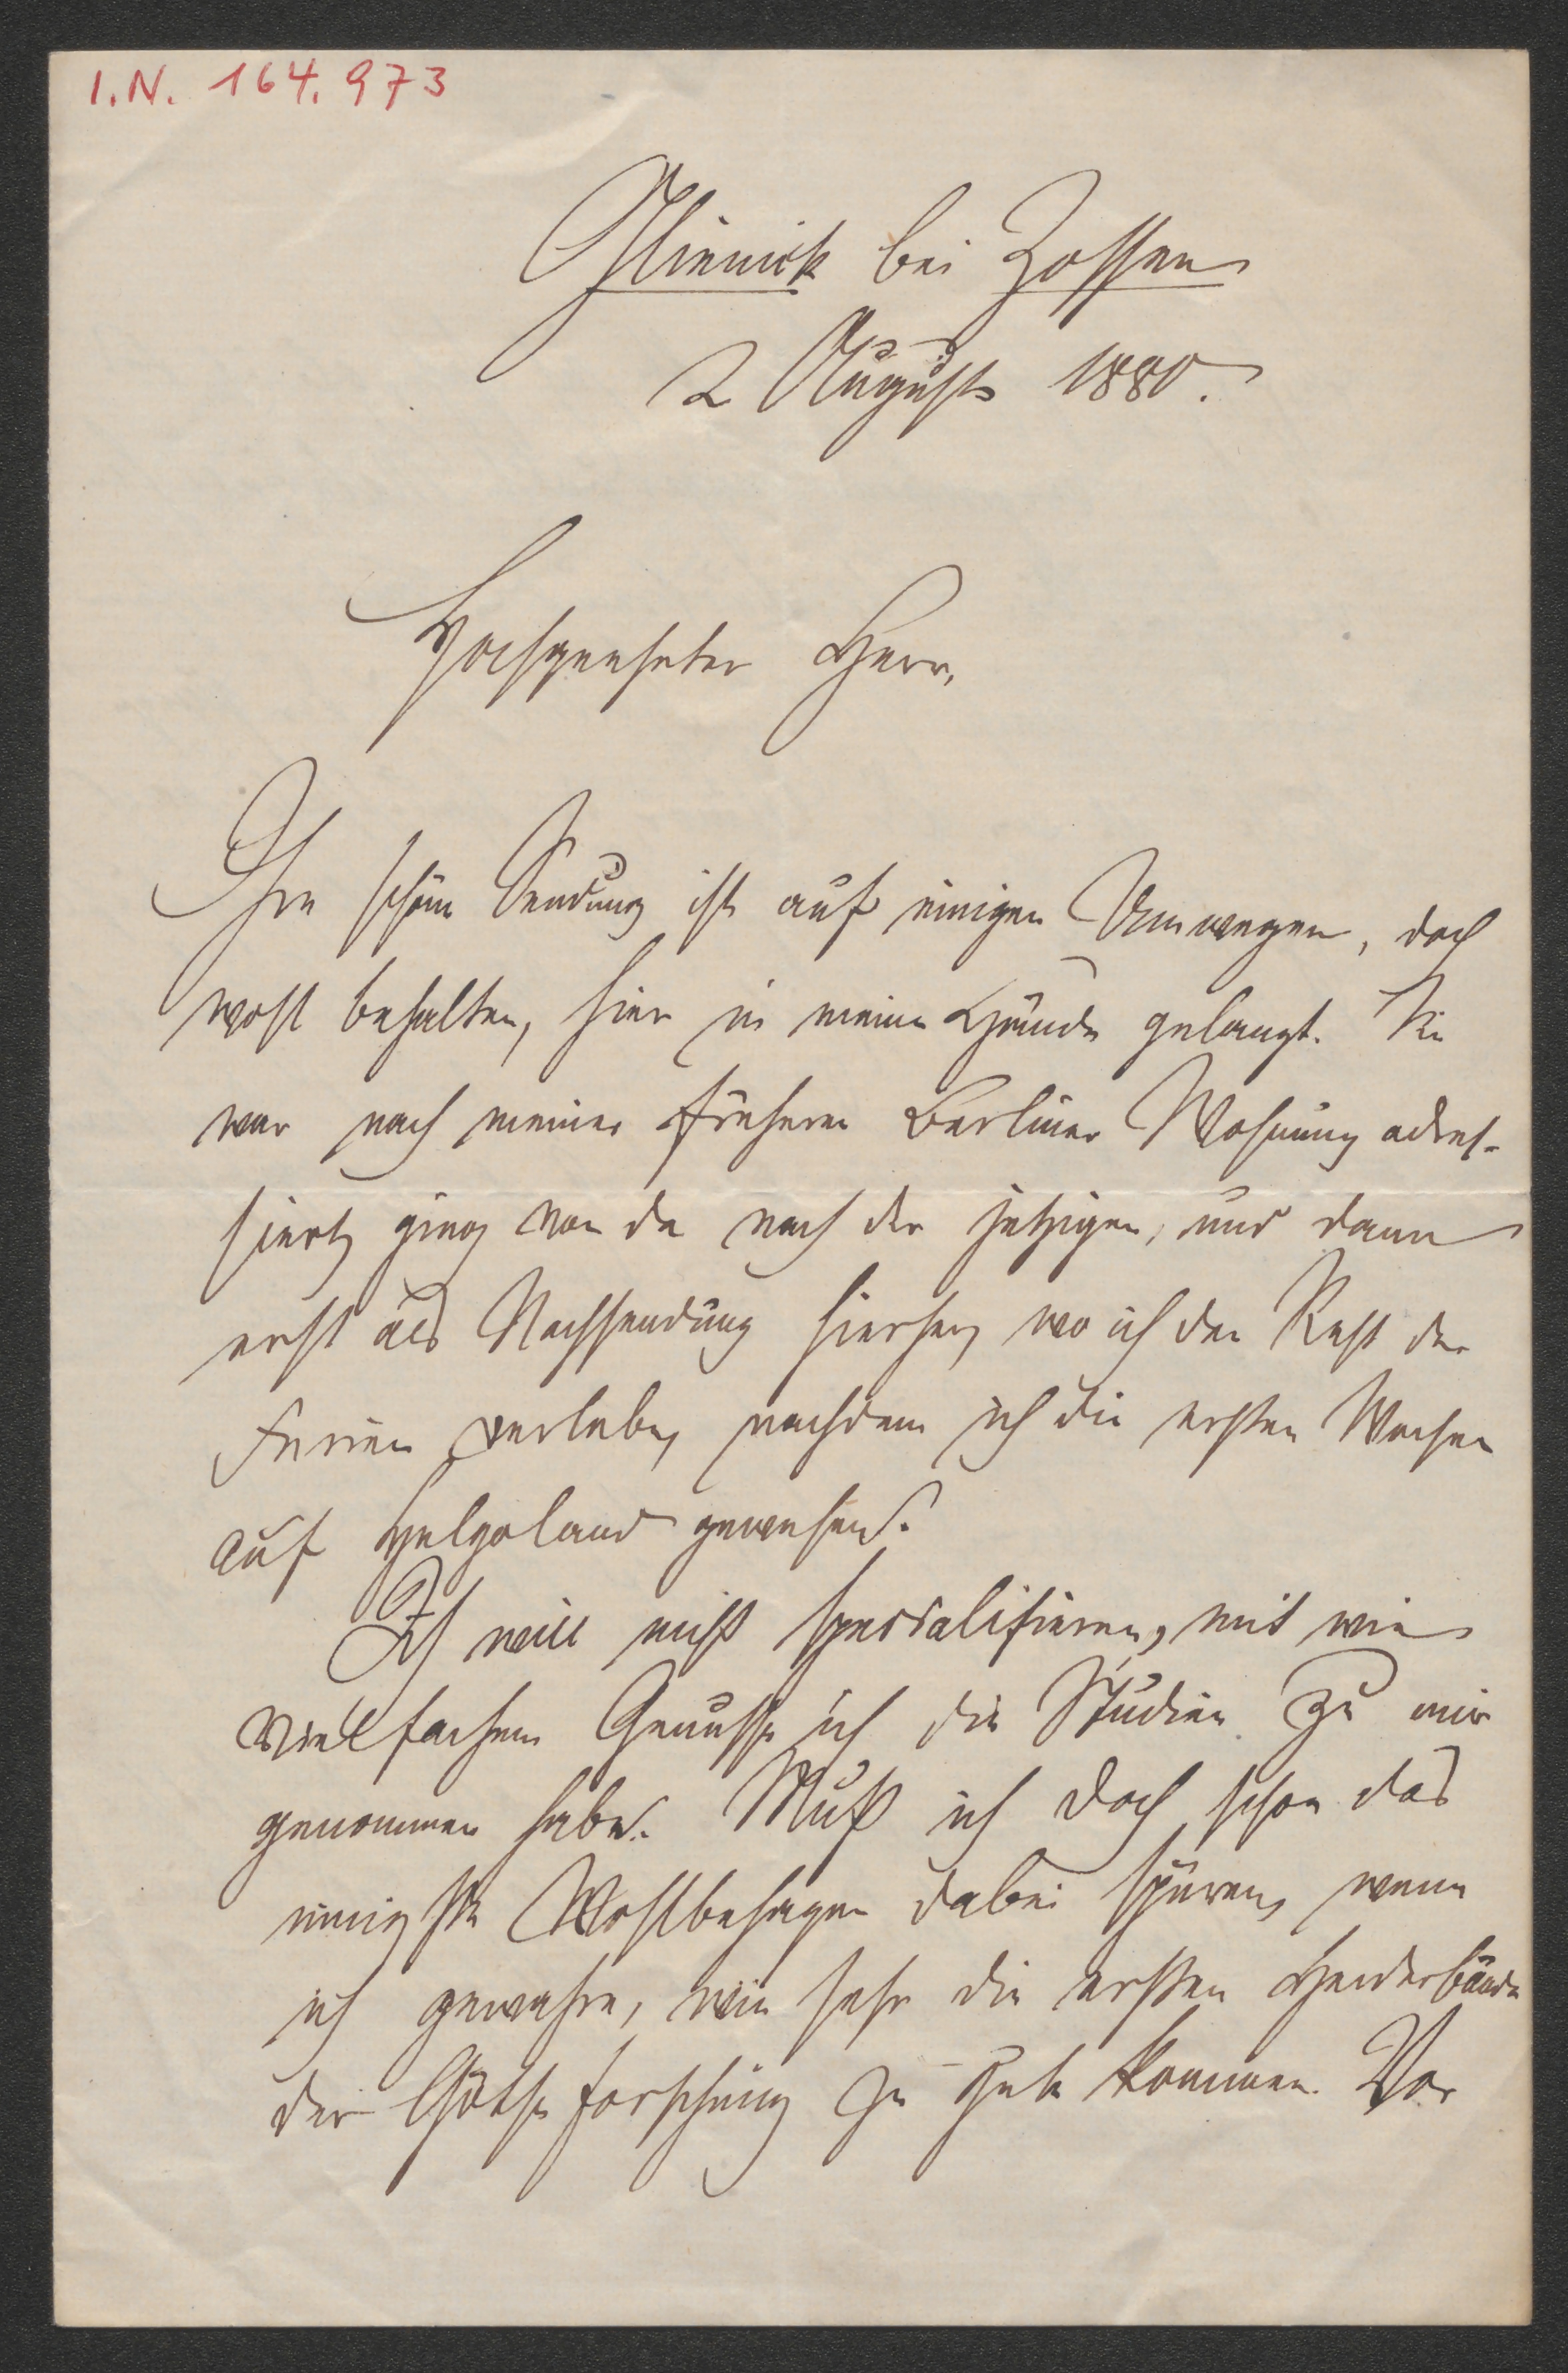 I.N. 164.973
Glienick bei Zossen
2 August 1880.
Hochgeehrter Herr,
Ihre schöne Sendung ist auf einigen Umwegen, doch
wohl behalten, hier in meine Hände gelangt. Sie
war nach meiner früheren Berliner Wohnung adres-
siert, ging von da nach der jetzigen, und dann
erst als Nachsendung hierher, wo ich den Rest der
Ferien verlebe, nachdem ich die ersten Wochen
auf Helgoland gewesen.
Ich will nicht specialisieren, mit wie
vielfachem Genusse ich die Studien zu mir
genommen habe. Muß ich doch schon das
innigste Wohlbehagen dabei spüren, wenn
ich gewahre, wie sehr die ersten Herderbände
der Götheforschung zu gute kommen. Vor